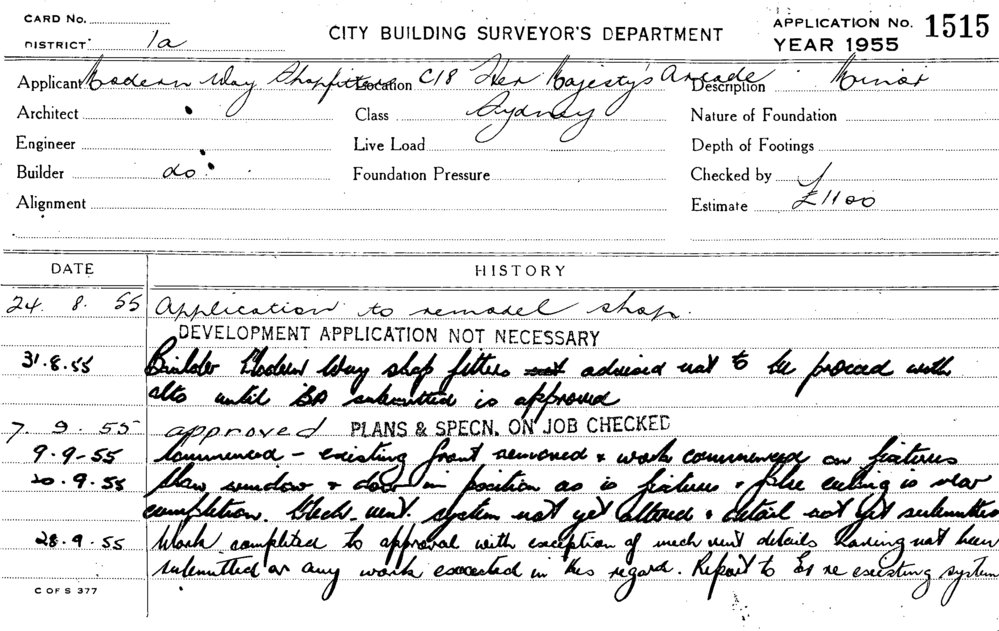 CARD No.
DISTRICT 1a
CITY BUILDING SURVEYOR'S DEPARTMENT
APPLICATION No. 1515
YEAR 1955
Applicant Modern Way Shopfitters Location C18 Her Majesty's Arcade Description Minor
Architect Class Sydney Nature of Foundation
Engineer Live Load Depth of Footings
Builder do. Foundation Pressure Checked by
Alignment Estimate £1100
DATE HISTORY
24. 8. 55 Application to remodel shop.
DEVELOPMENT APPLICATION NOT NECESSARY
31.8.55 Builder Modern Way shop fitters not advised not to be proceed with
alts until BA submitted is approved
7. 9. 55 approved PLANS & SPECN. ON JOB CHECKED
9.9-55 Commenced - existing front removed & work commenced on fixtures
20.9.55 Shaw window & door in position as is fixtures & false ceiling is near
completion. Mech. vent. system not yet altered & detail not yet submitted
28.9.55 Work completed to approval with exception of mech vent details having not been
submitted or any work executed in this regard. Report to re existing system
C OF S 377